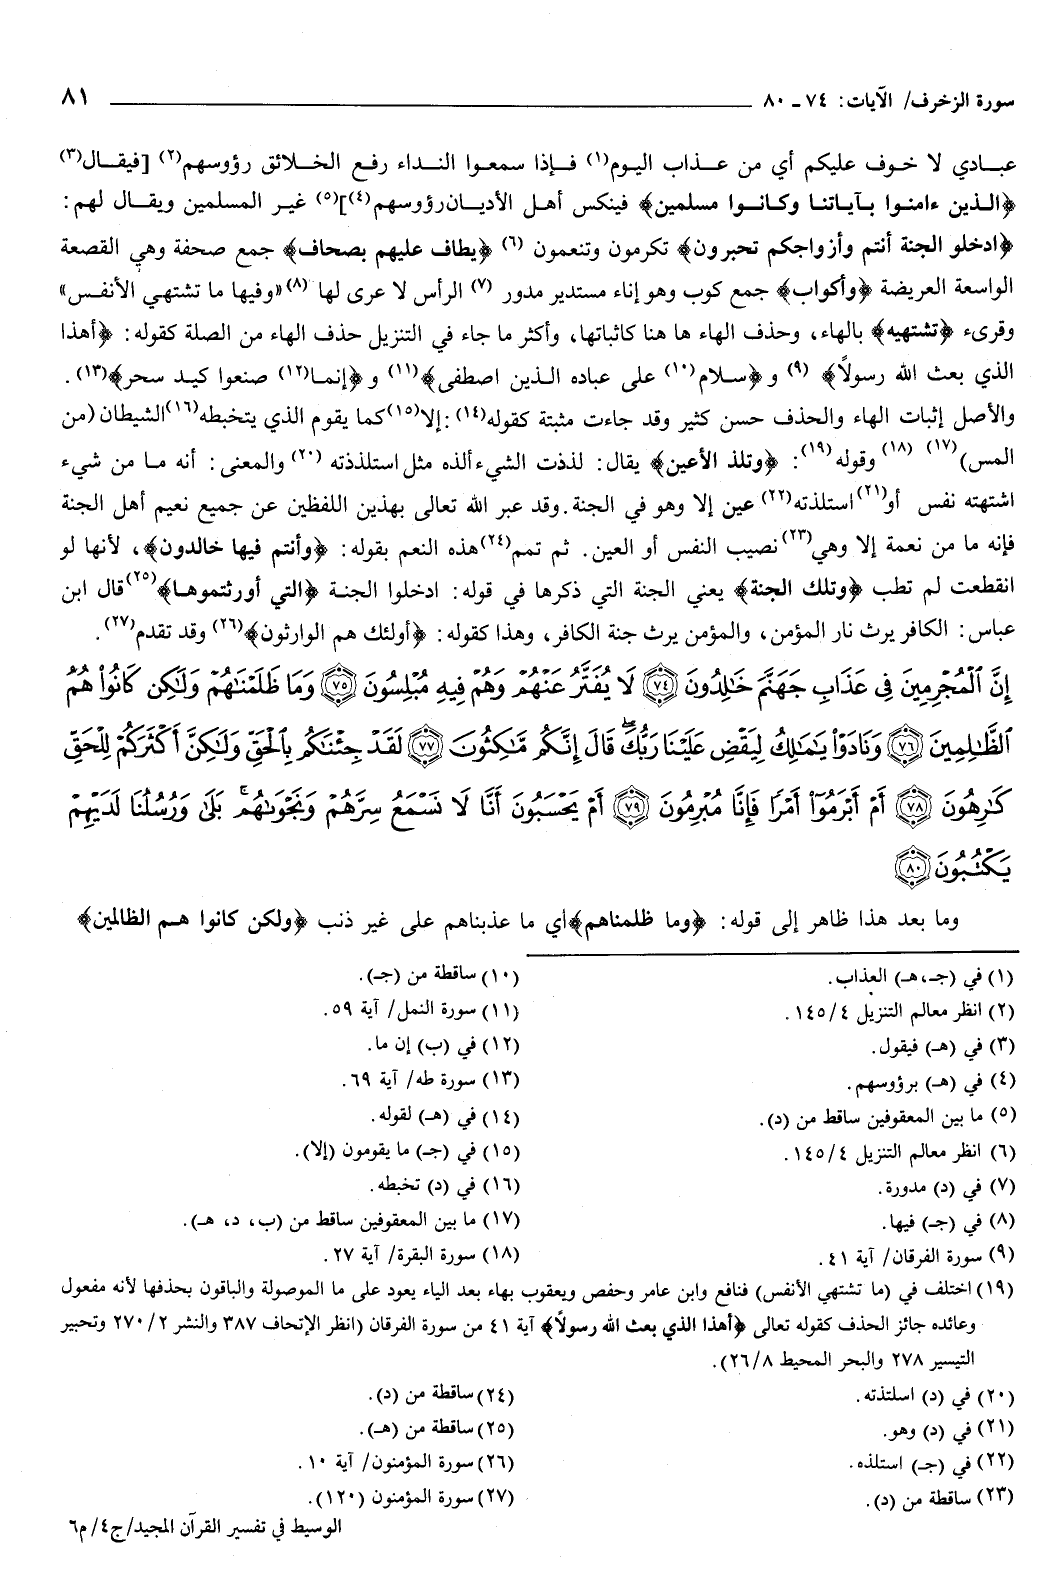 سورة الزخرف/ الآيات: ٧٤ ـ ٨٠ ٨١
عبادي لا خوف عليكم أي من عذاب اليوم(١) فإذا سمعوا النداء رفع الخلائق رؤوسهم(٢) [فيقال(٣)
﴿الذين ءامنوا بآياتنا وكانوا مسلمين﴾ فينكس أهل الأديان رؤوسهم(٤)](٥) غير المسلمين ويقال لهم:
﴿ادخلو الجنة أنتم وأزواجكم تحبرون﴾ تكرمون وتنعمون (٦) ﴿يطاف عليهم بصحاف﴾ جمع صحفة وهي القصعة
الواسعة العريضة ﴿وأكواب﴾ جمع كوب وهو إناء مستدير مدور (٧) الرأس لا عرى لها (٨) «وفيها ما تشتهي الأنفس»
وقرىء ﴿تشتهيه﴾ بالهاء، وحذف الهاء ها هنا كاثباتها، وأكثر ما جاء في التنزيل حذف الهاء من الصلة كقوله: ﴿أهذا
الذي بعث الله رسولاً﴾ (٩) و﴿سلام(١٠) على عباده الذين اصطفى﴾(١١) و﴿إنما(١٢) صنعوا كيد سحر﴾(١٣).
والأصل إثبات الهاء والحذف حسن كثير وقد جاءت مثبتة كقوله(١٤): إلا(١٥) كما يقوم الذي يتخبطه(١٦) الشيطان (من
المس)(١٧) (١٨) وقوله(١٩): ﴿وتلذ الأعين﴾ يقال: لذذت الشيء ألذه مثل استلذذته (٢٠) والمعنى: أنه ما من شيء
اشتهته نفس أو(٢١) استلذته(٢٢) عين إلا وهو في الجنة. وقد عبر الله تعالى بهذين اللفظين عن جميع نعيم أهل الجنة
فإنه ما من نعمة إلا وهي(٢٣) نصيب النفس أو العين. ثم تمم(٢٤) هذه النعم بقوله: ﴿وأنتم فيها خالدون﴾، لأنها لو
انقطعت لم تطب ﴿وتلك الجنة﴾ يعني الجنة التي ذكرها في قوله: ادخلوا الجنة ﴿التي أورثتموها﴾(٢٥) قال ابن
عباس: الكافر يرث نار المؤمن، والمؤمن يرث جنة الكافر، وهذا كقوله: ﴿أولئك هم الوارثون﴾(٢٦) وقد تقدم(٢٧).
إِنَّ ٱلْمُجْرِمِينَ فِي عَذَابِ جَهَنَّمَ خَٰلِدُونَ ٧٤ لَا يُفَتَّرُ عَنْهُمْ وَهُمْ فِيهِ مُبْلِسُونَ ٧٥ وَمَا ظَلَمْنَٰهُمْ وَلَٰكِن كَانُوا۟ هُمُ
ٱلظَّٰلِمِينَ ٧٦ وَنَادَوْا۟ يَٰمَٰلِكُ لِيَقْضِ عَلَيْنَا رَبُّكَ ۖ قَالَ إِنَّكُم مَّٰكِثُونَ ٧٧ لَقَدْ جِئْنَٰكُم بِٱلْحَقِّ وَلَٰكِنَّ أَكْثَرَكُمْ لِلْحَقِّ
كَٰرِهُونَ ٧٨ أَمْ أَبْرَمُوٓا۟ أَمْرًا فَإِنَّا مُبْرِمُونَ ٧٩ أَمْ يَحْسَبُونَ أَنَّا لَا نَسْمَعُ سِرَّهُمْ وَنَجْوَىٰهُم ۚ بَلَىٰ وَرُسُلُنَا لَدَيْهِمْ
يَكْتُبُونَ ٨٠
وما بعد هذا ظاهر إلى قوله: ﴿وما ظلمناهم﴾ أي ما عذبناهم على غير ذنب ﴿ولكن كانوا هم الظالمين﴾
(١) في (جـ، هـ) العذاب.
(٢) انظر معالم التنزيل ٤/ ١٤٥.
(٣) في (هـ) فيقول.
(٤) في (هـ) برؤوسهم.
(٥) ما بين المعقوفين ساقط من (د).
(٦) انظر معالم التنزيل ٤/ ١٤٥.
(٧) في (د) مدورة.
(٨) في (جـ) فيها.
(٩) سورة الفرقان/ آية ٤١.
(١٠) ساقطة من (جـ).
(١١) سورة النمل/ آية ٥٩.
(١٢) في (ب) إن ما.
(١٣) سورة طه/ آية ٦٩.
(١٤) في (هـ) لقوله.
(١٥) في (جـ) ما يقومون (إلا).
(١٦) في (د) تخبطه.
(١٧) ما بين المعقوفين ساقط من (ب، د، هـ).
(١٨) سورة البقرة/ آية ٢٧.
(١٩) اختلف في (ما تشتهي الأنفس) فنافع وابن عامر وحفص ويعقوب بهاء بعد الياء يعود على ما الموصولة والباقون بحذفها لأنه مفعول
وعائده جائز الحذف كقوله تعالى ﴿أهذا الذي بعث الله رسولاً﴾ آية ٤١ من سورة الفرقان (انظر الإتحاف ٣٨٧ والنشر ٢/ ٢٧٠ وتحبير
التيسير ٢٧٨ والبحر المحيط ٨/ ٢٦).
(٢٠) في (د) اسلتذته.
(٢١) في (د) وهو.
(٢٢) في (جـ) استلذه.
(٢٣) ساقطة من (د).
(٢٤) ساقطة من (د).
(٢٥) ساقطة من (هـ).
(٢٦) سورة المؤمنون/ آية ١٠.
(٢٧) سورة المؤمنون (١٢٠).
الوسيط في تفسير القرآن المجيد/ ج٤/ م٦